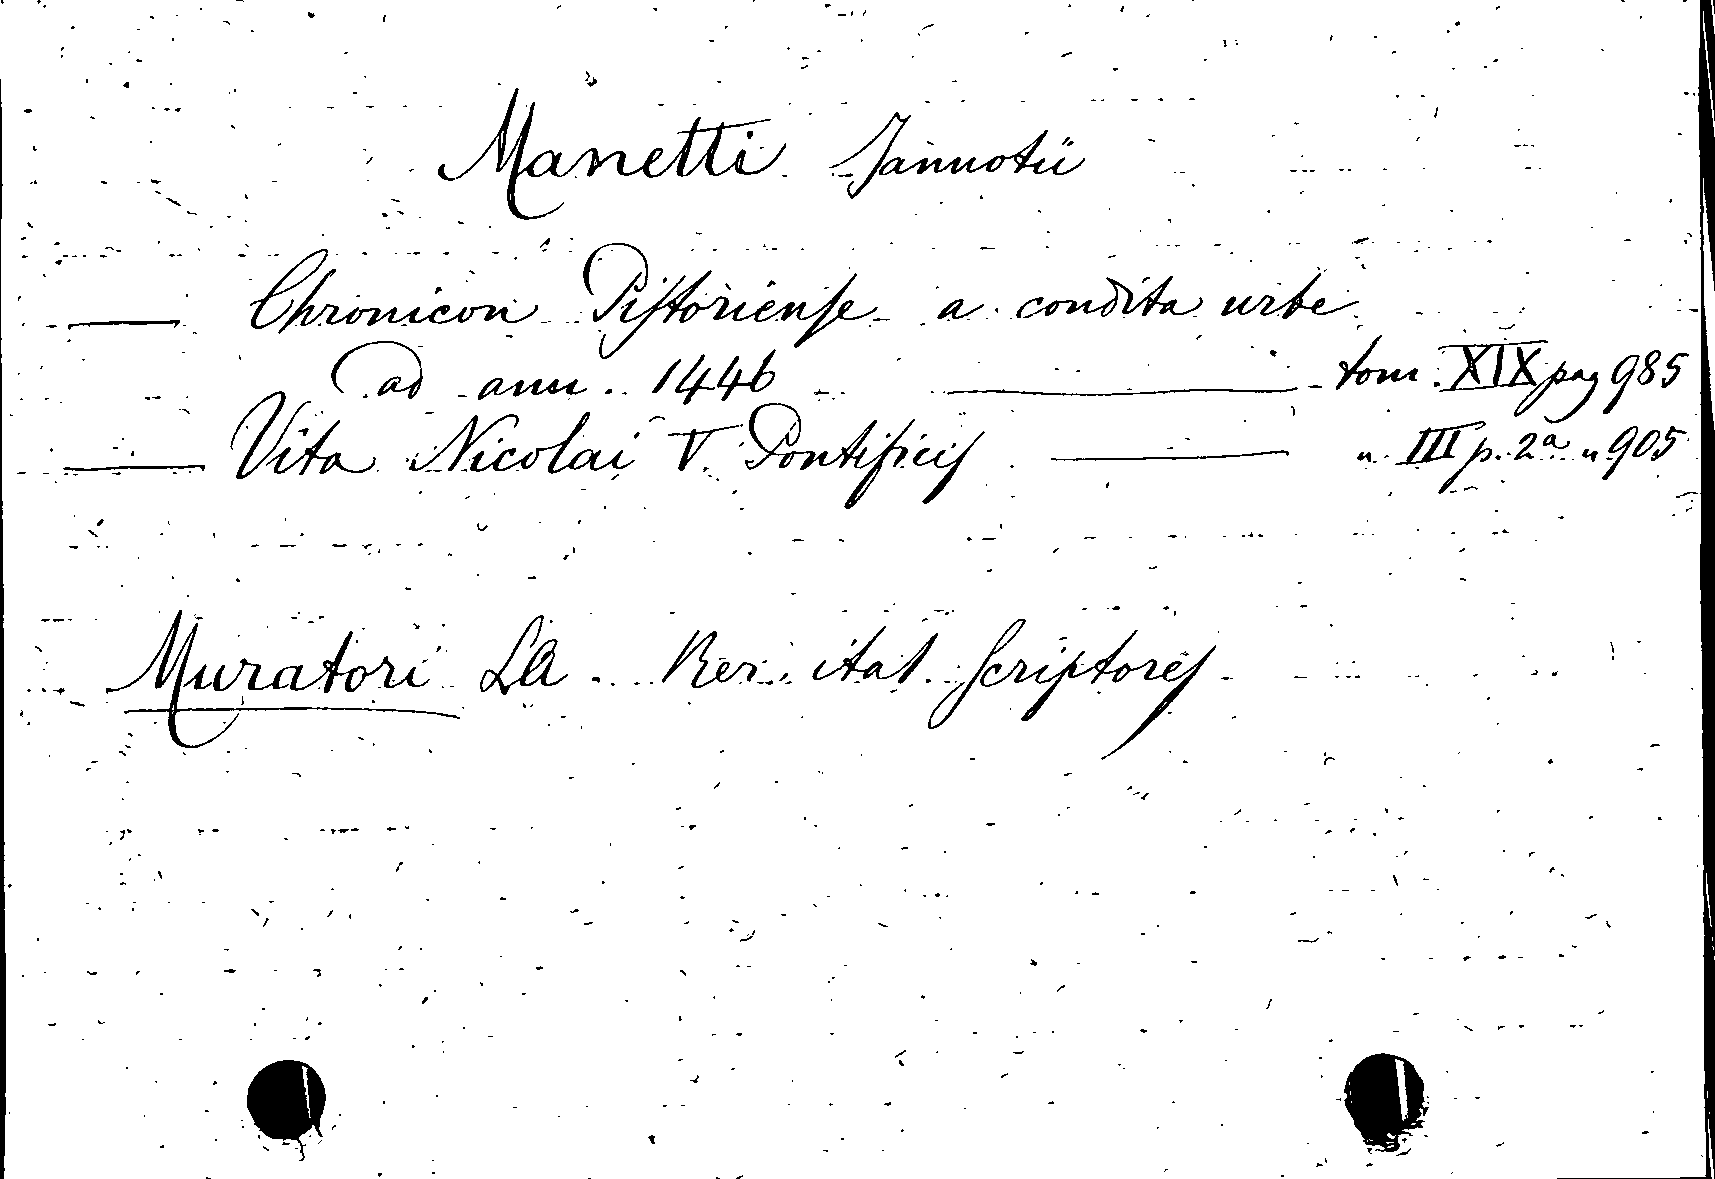 Manetti Jannotii
— Chronicon Pistoriense a condita urbe
ad ann. 1446 — tom. XIX pag 985
— Vita Nicolai V. Pontificis — " III p. 2a " 905
Muratori LA. Rer. ital. Scriptores